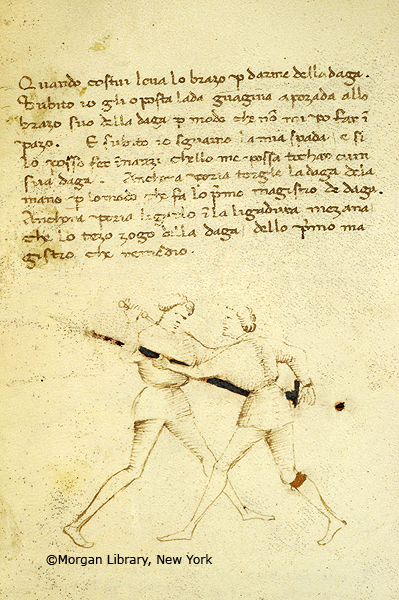 Quando costui leva lo brazo p darme della daga.
Subito io gli o posta la da guagina apozada allo
brazo suo della daga p modo che nō mi po far ī
pazo. E subito io sguaino la mia spada e si
lo posso ferī inanzi chello me possa tochar cum
sua daga. Anchora poria torgle la daga dela
mano p lo modo che fa lo p'mo magistro de daga.
Anchora poria ligarlo ī la ligadura mezana
che lo terzo zogo della daga dello p'mo ma
gistro che remedio.
©Morgan Library, New York